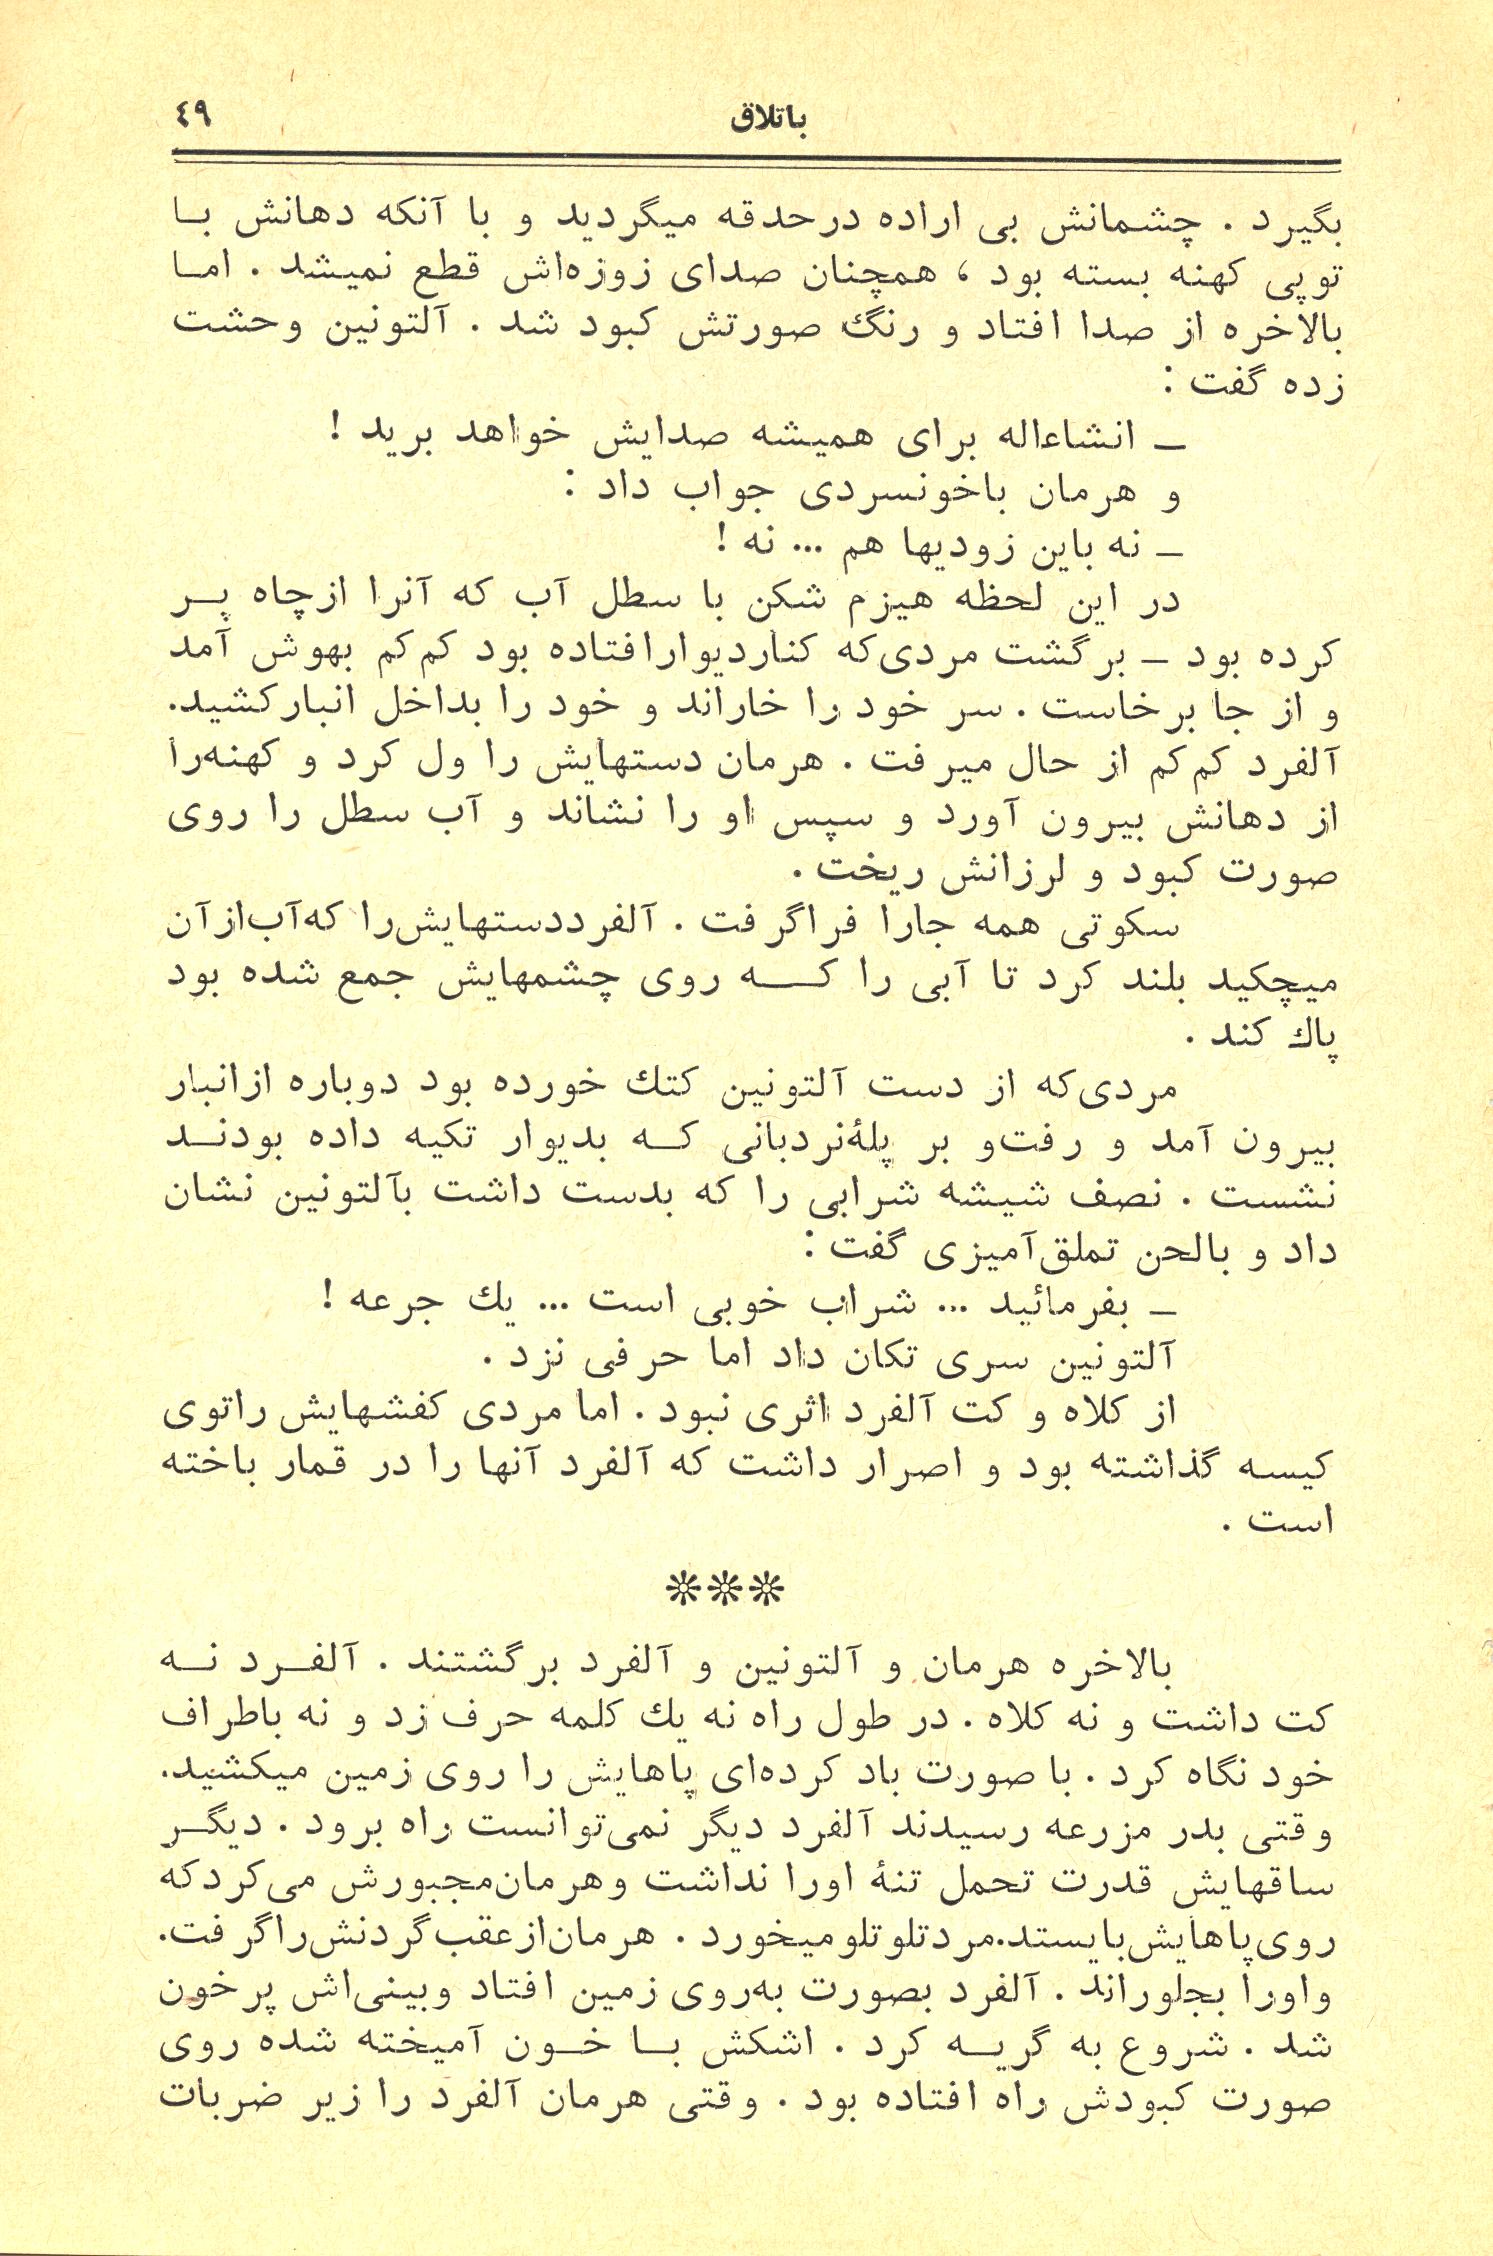 باتلاق ٤٩
بگیرد . چشمانش بی اراده درحدقه میگردید و با آنکه دهانش با
توپی کهنه بسته بود ، همچنان صدای زوزه‌اش قطع نمیشد . اما
بالاخره از صدا افتاد و رنگ صورتش کبود شد . آلتونین وحشت
زده گفت :
ـ انشاءاله برای همیشه صدایش خواهد برید !
و هرمان باخونسردی جواب داد :
ـ نه باین زودیها هم ... نه !
در این لحظه هیزم شکن با سطل آب که آنرا ازچاه پر
کرده بود ـ برگشت مردی‌که کناردیوارافتاده بود کم‌کم بهوش آمد
و از جا برخاست . سر خود را خاراند و خود را بداخل انبارکشید.
آلفرد کم‌کم از حال میرفت . هرمان دستهایش را ول کرد و کهنه‌را
از دهانش بیرون آورد و سپس او را نشاند و آب سطل را روی
صورت کبود و لرزانش ریخت .
سکوتی همه جارا فراگرفت . آلفرددستهایش‌را که‌آب‌ازآن
میچکید بلند کرد تا آبی را که روی چشمهایش جمع شده بود
پاك کند .
مردی‌که از دست آلتونین کتك خورده بود دوباره ازانبار
بیرون آمد و رفت‌و بر پلهٔ‌نردبانی که بدیوار تکیه داده بودند
نشست . نصف شیشه شرابی را که بدست داشت بآلتونین نشان
داد و بالحن تملق‌آمیزی گفت :
ـ بفرمائید ... شراب خوبی است ... یك جرعه !
آلتونین سری تکان داد اما حرفی نزد .
از کلاه و کت آلفرد اثری نبود . اما مردی کفشهایش راتوی
کیسه گذاشته بود و اصرار داشت که آلفرد آنها را در قمار باخته
است .
❊❊❊
بالاخره هرمان و آلتونین و آلفرد برگشتند . آلفرد نه
کت داشت و نه کلاه . در طول راه نه یك کلمه حرف زد و نه باطراف
خود نگاه کرد . با صورت باد کرده‌ای پاهایش را روی زمین میکشید.
وقتی بدر مزرعه رسیدند آلفرد دیگر نمی‌توانست راه برود . دیگر
ساقهایش قدرت تحمل تنهٔ اورا نداشت وهرمان‌مجبورش می‌کردکه
روی‌پاهایش‌بایستد.مردتلوتلومیخورد . هرمان‌ازعقب‌گردنش‌راگرفت.
واورا بجلوراند . آلفرد بصورت به‌روی زمین افتاد وبینی‌اش پرخون
شد . شروع به گریه کرد . اشکش با خون آمیخته شده روی
صورت کبودش راه افتاده بود . وقتی هرمان آلفرد را زیر ضربات